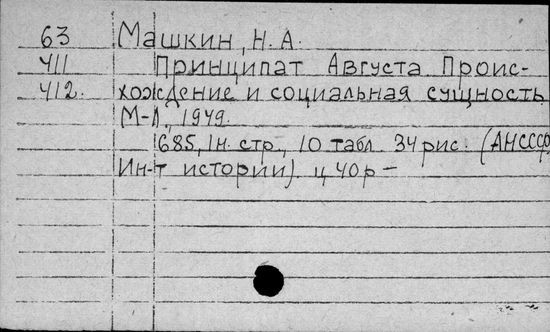 63 Машкин, Н. А.
411 Принципат Августа Проис-
412. хождение и социальная сущность
М-Л, 1949.
685, 1н. стр., 10 табл. 34 рис. (АНСССР
Ин-т истории). ц 40р-